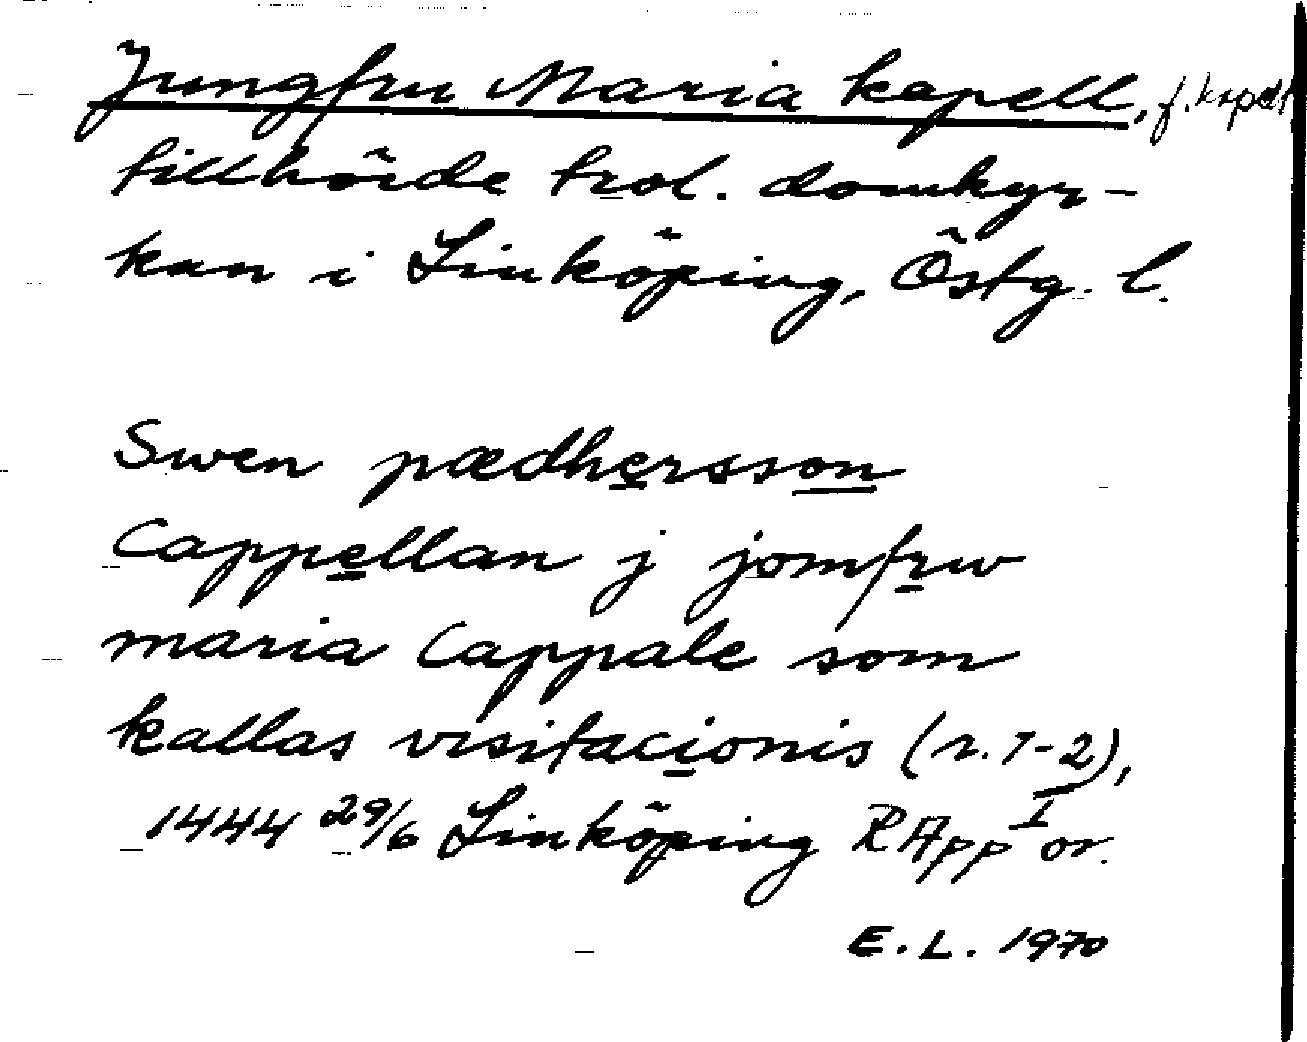 Jungfru Maria kapell, f. kapell,
tillhörde trol. domkyr-
kan i Linköping, Östg. l.
Swen pædhersson
Cappellan j jomfrw
maria Cappale som
kallas visitacionis (r. 1-2),
1444 29/6 Linköping RApp I or.
E. L. 1970